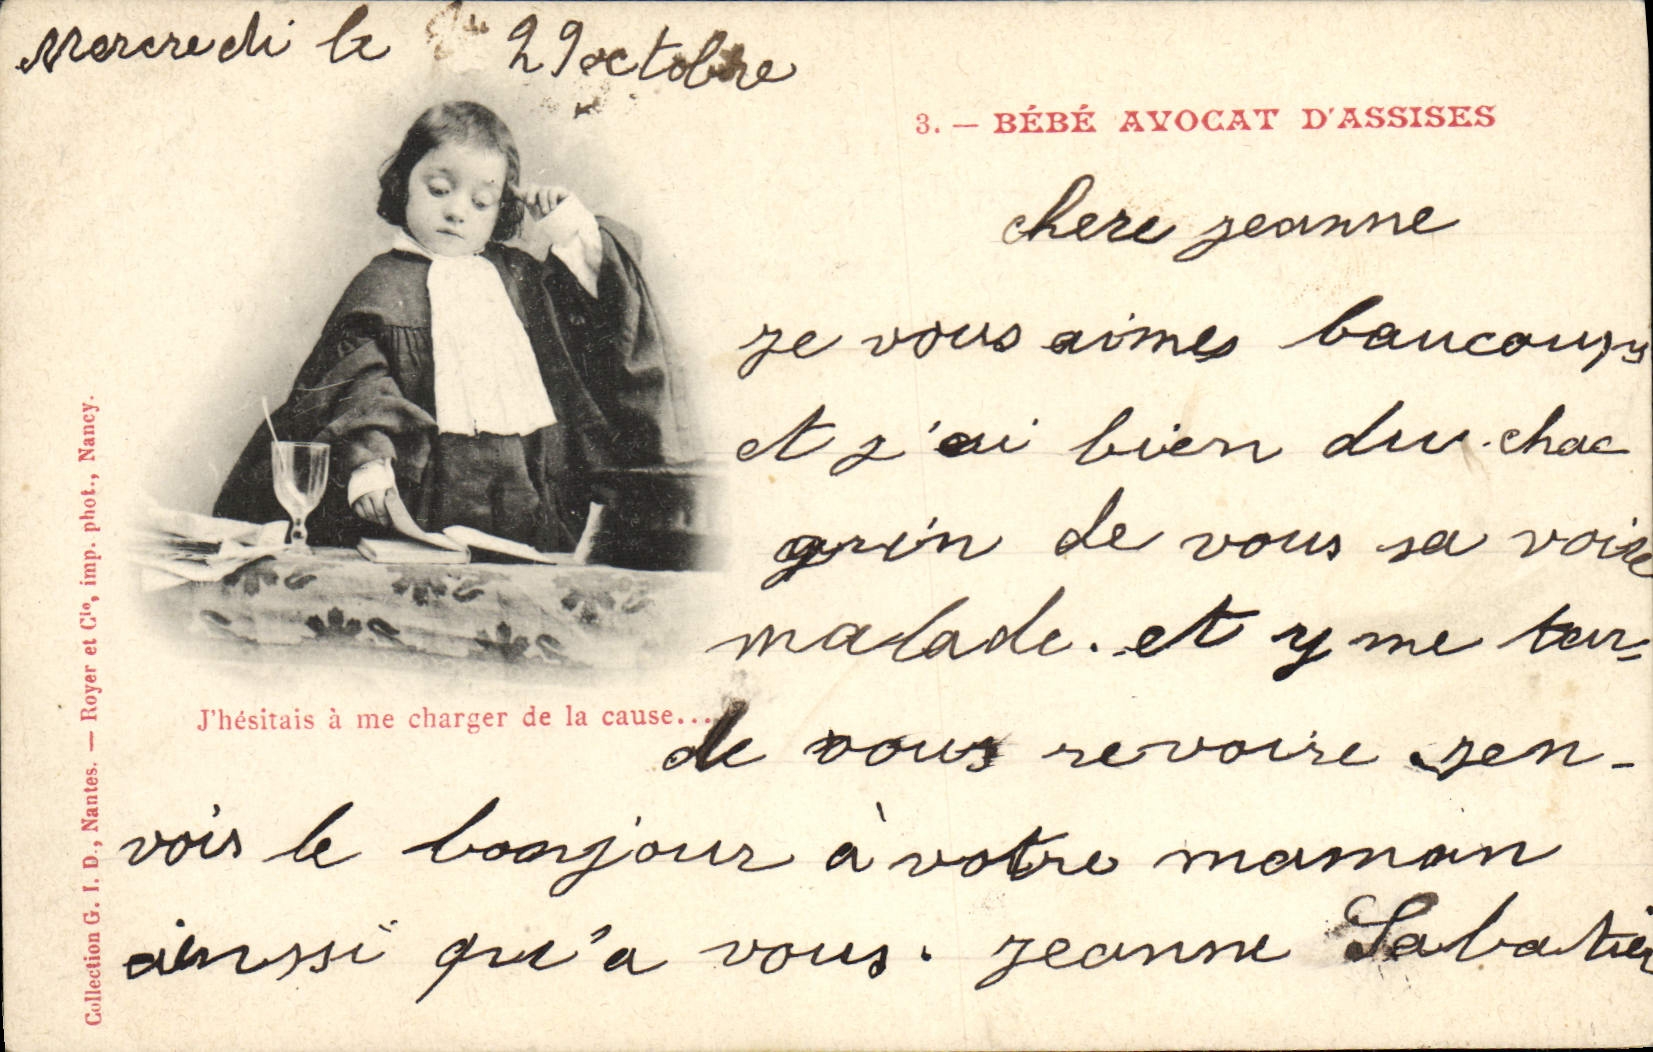 Mercredi le 29 octobre
3. — BÉBÉ AVOCAT D'ASSISES
chere jeanne
je vous aimes baucoup
et j'ai bien du chac
grin de vous sa voire
malade. et y me tar-
de vous revoire jen-
vois le bonjour à votre maman
ainssi qu'a vous. jeanne Sabatier
J'hésitais à me charger de la cause...
Collection G. I. D., Nantes. — Royer et Cie, imp. phot., Nancy.